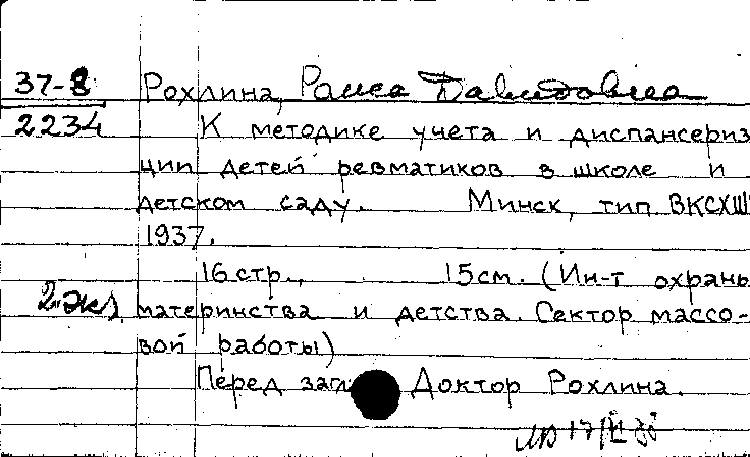 37-8 Рохлина, Раиса Давидовна
2234 К методике учета и диспансериз
ции детей ревматиков в школе и
детском саду. Минск, тип ВКСХШ
1937.
16 стр., 15 см. (Ин-т охраны
2 экз. материнства и детства. Сектор массо-
вой работы)
Перед загл. Доктор Рохлина.